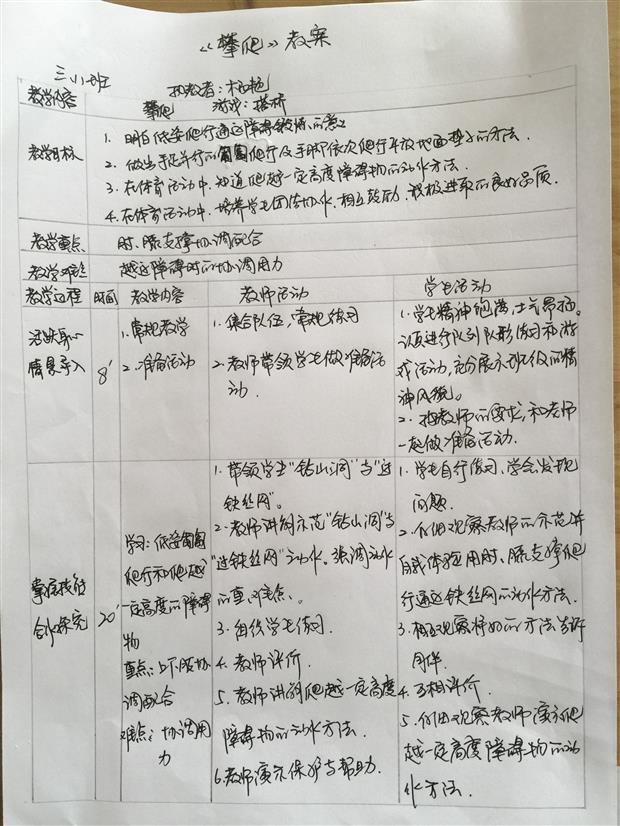 《攀爬》教案
三(1)班
执教者:杨艳
教学内容
攀爬 游戏:搭桥
教学目标
1. 明白低姿爬行通过障碍锻炼的意义
2. 做出手足并行的匍匐爬行及手脚依次爬行平放地面垫子的方法.
3. 在体育活动中,知道爬越一定高度障碍物的动作方法.
4. 在体育活动中,培养学生团结协作、相互鼓励、积极进取的良好品质.
教学重点
肘、膝支撑协调配合
教学难点
越过障碍时的协调用力
教学过程 时间 教学内容 教师活动 学生活动
活跃身心
情景导入
8′
1. 常规教学
2. 准备活动
1. 集合队伍,常规练习
2. 教师带领学生做准备活
动.
1. 学生精神饱满,士气昂扬。
认真进行队列队形练习和游
戏活动,充分展示班级的精
神风貌。
2. 按教师的要求,和老师
一起做准备活动.
掌握技能
合作探究
20′
学习:低姿匍匐
爬行和爬越
一定高度的障碍
物
重点:上下肢协
调配合
难点:协调用
力
1. 带领学生"钻山洞"与"过
铁丝网"。
2. 教师讲解示范"钻山洞"与
"过铁丝网"动作。强调动作
的重、难点、
3. 组织学生练习
4. 教师评价.
5. 教师讲解爬越一定高度
障碍物的动作方法.
6. 教师演示保护与帮助.
1. 学生自行练习、学会发现
问题.
2. 仔细观察教师的示范并
自我体验用肘、膝支撑爬
行通过铁丝网的动作方法.
3. 相互观察将好的方法告诉
同伴.
4. 互相评价.
5. 仔细观察教师演示爬
越一定高度障碍物的动
作方法.